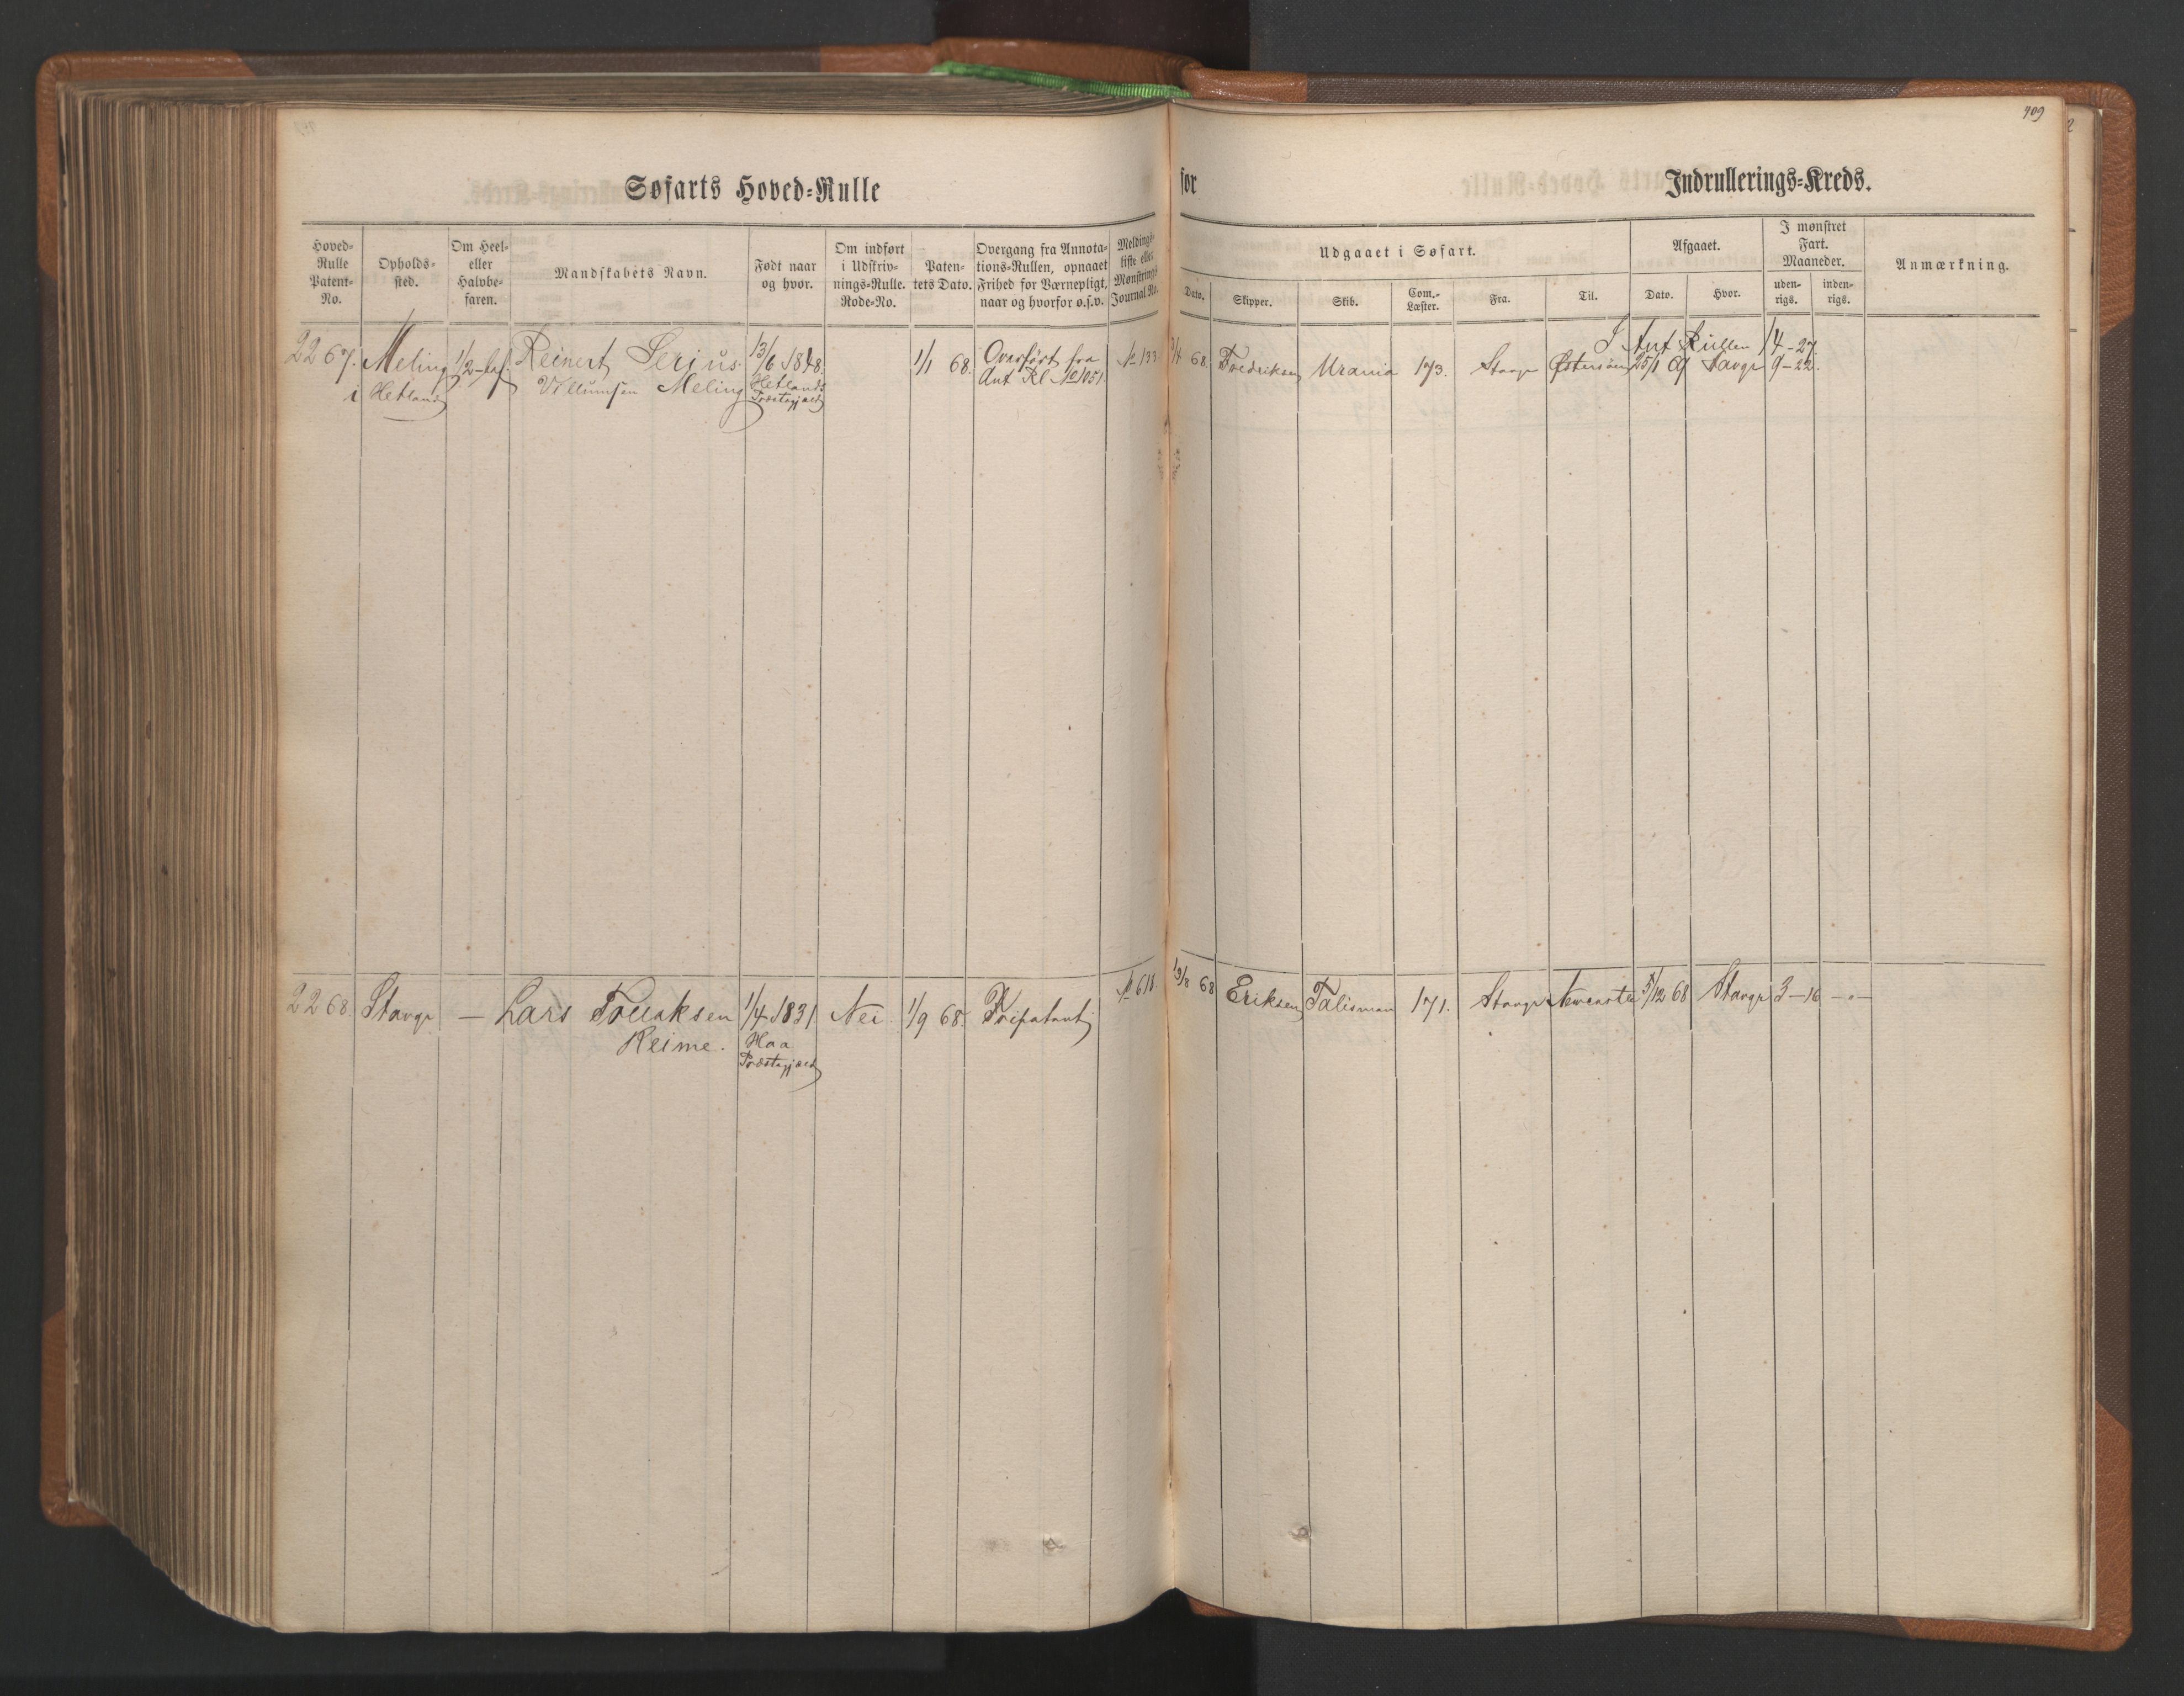 409
Søfarts Hoved-Rulle for Indrullerings-Kreds.
Hoved-Rulle Patent-No.
Opholds-sted.
Om Heel- eller Halvbe-faren.
Mandskabets Navn.
Født naar og hvor.
Om indført i Udskriv-nings-Rulle. Rode-No.
Paten-tets Dato.
Overgang fra Annota-tions-Rullen, opnaaet Frihed for Værnepligt, naar og hvorfor o.s.v.
Meldings-liste eller Mønstrings Journal No.
Udgaaet i Søfart.
Dato. Skipper. Skib. Com.-Læster. Fra. Til.
Afgaaet.
Dato. Hvor.
I mønstret Fart. Maaneder.
uden-rigs. inden-rigs.
Anmærkning.
I Ant Rullen 14-27
2267. Meling 1/2-bef. Reinert Serius 13/6 1848. 1/1 68. Overført fra No 133 3/4 68. Fredriksen Urania 173. Stavgr Østersøen 25/1 69 Stavgr 9-22.
i Hetland Villumsen Meling Hetlands Præstegjæld Ant Rl No 1051.
2268. Stavgr - Lars Tollaksen 1/4 1831. Nei. 1/9 68. Fripatent No 618 13/8 68 Eriksen Talisman 171. Stavgr Newcastle 5/12 68 Stavgr 3-16 -"-
Reime. Haa Præstegjæld